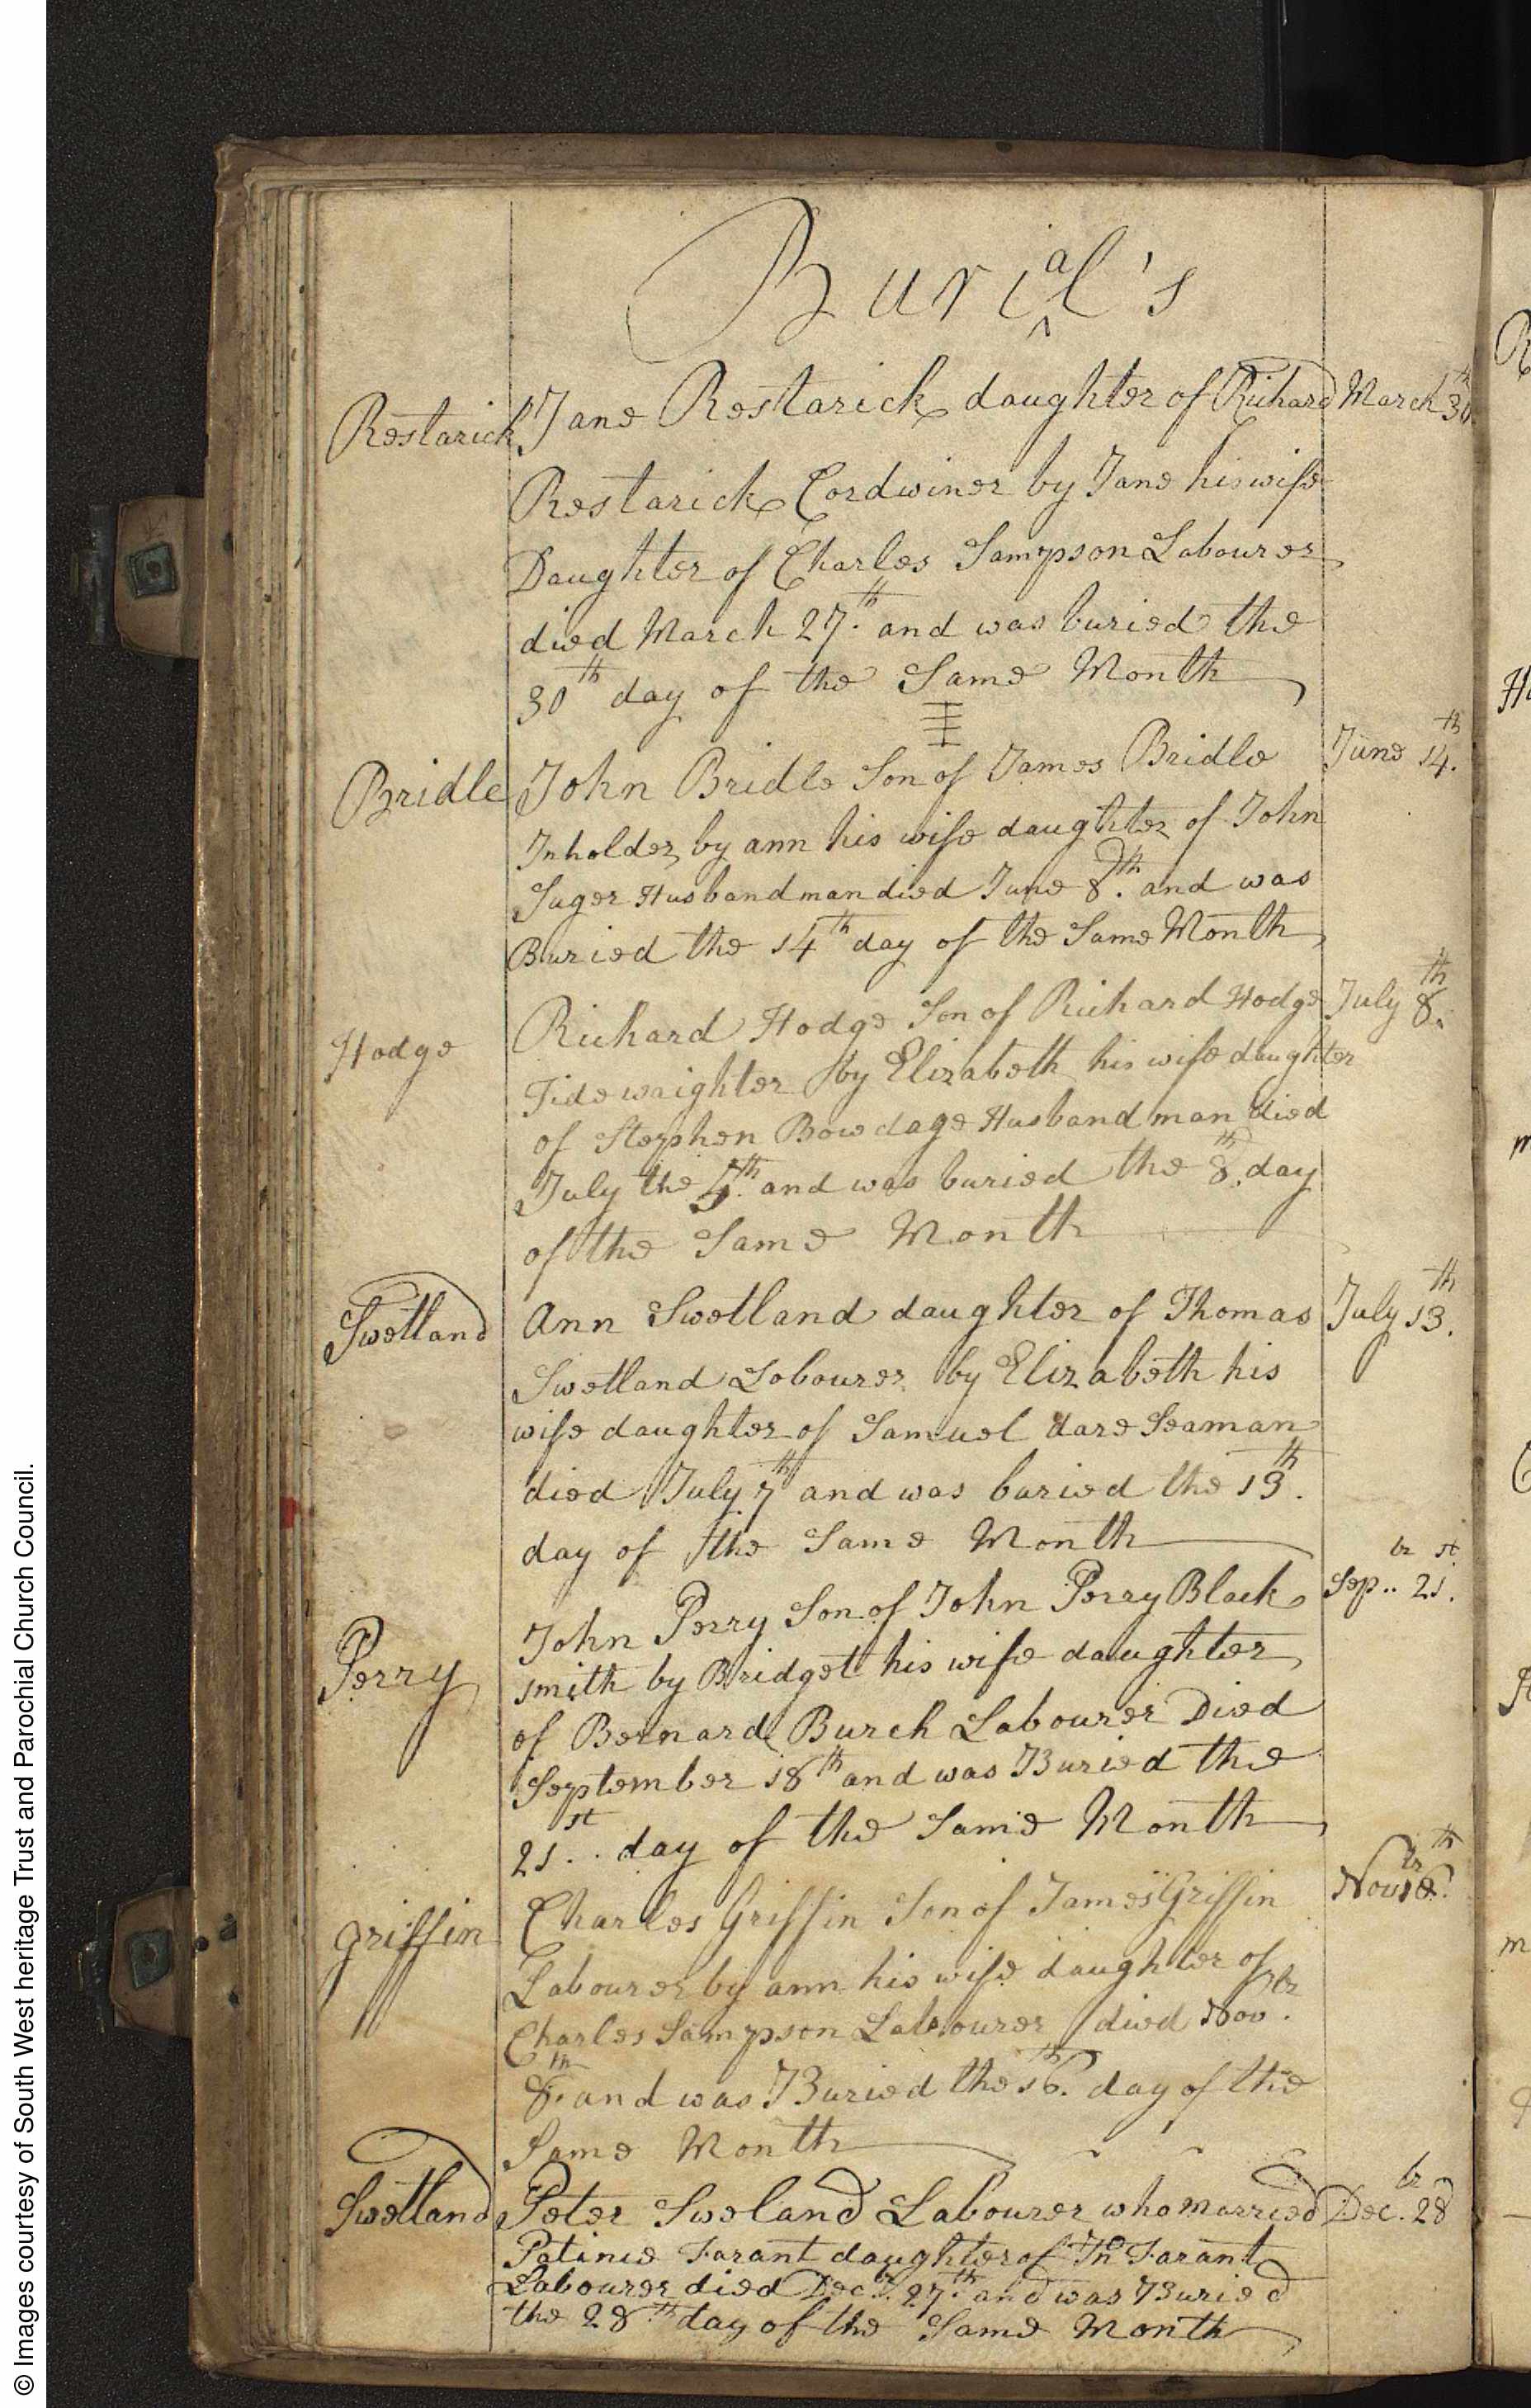 Burial's
Restarick Jane Restarick daughter of Richard March 30th
Restarick Cordwiner by Jane his wife
Daughter of Charles Sampson Labourer
died March 27th. and was buried the
30th day of the Same Month
Bridle John Bridle Son of James Bridle June 14th.
Inholder by ann his wife daughter of John
Suger Husbandman died June 8th. and was
Buried the 14th day of the Same Month
Hodge Richard Hodge Son of Richard Hodge July 8th.
Tidewaighter by Elizabeth his wife daughter
of Stephen Bowdage Husbandman died
July the 5th. and was buried the 8th. day
of the Same Month
Swetland Ann Swetland daughter of Thomas July 13th.
Swetland Labourer by Elizabeth his
wife daughter of Samuel dare Seaman
died July 7th and was buried the 13th.
day of the Same Month
Perry John Perry Son of John Perry Black Sepbr.. 21st.
smith by Bridget his wife daughter
of Bernard Burch Labourer Died
September 18th and was Buried the
21st.. day of the Same Month
Griffin Charles Griffin Son of James Griffin Novbr 16th.
Labourer by ann his wife daughter of
Charles Sampson Labourer died Novbr.
8th. and was Buried the 16th. day of the
Same Month
Swetland Peter Sweland Labourer who married Decbr. 28
Patince Farant daughter of Jno Farant
Labourer died Decbr. 27th. and was Buried
the 28th day of the Same Month
© Images courtesy of South West heritage Trust and Parochial Church Council.